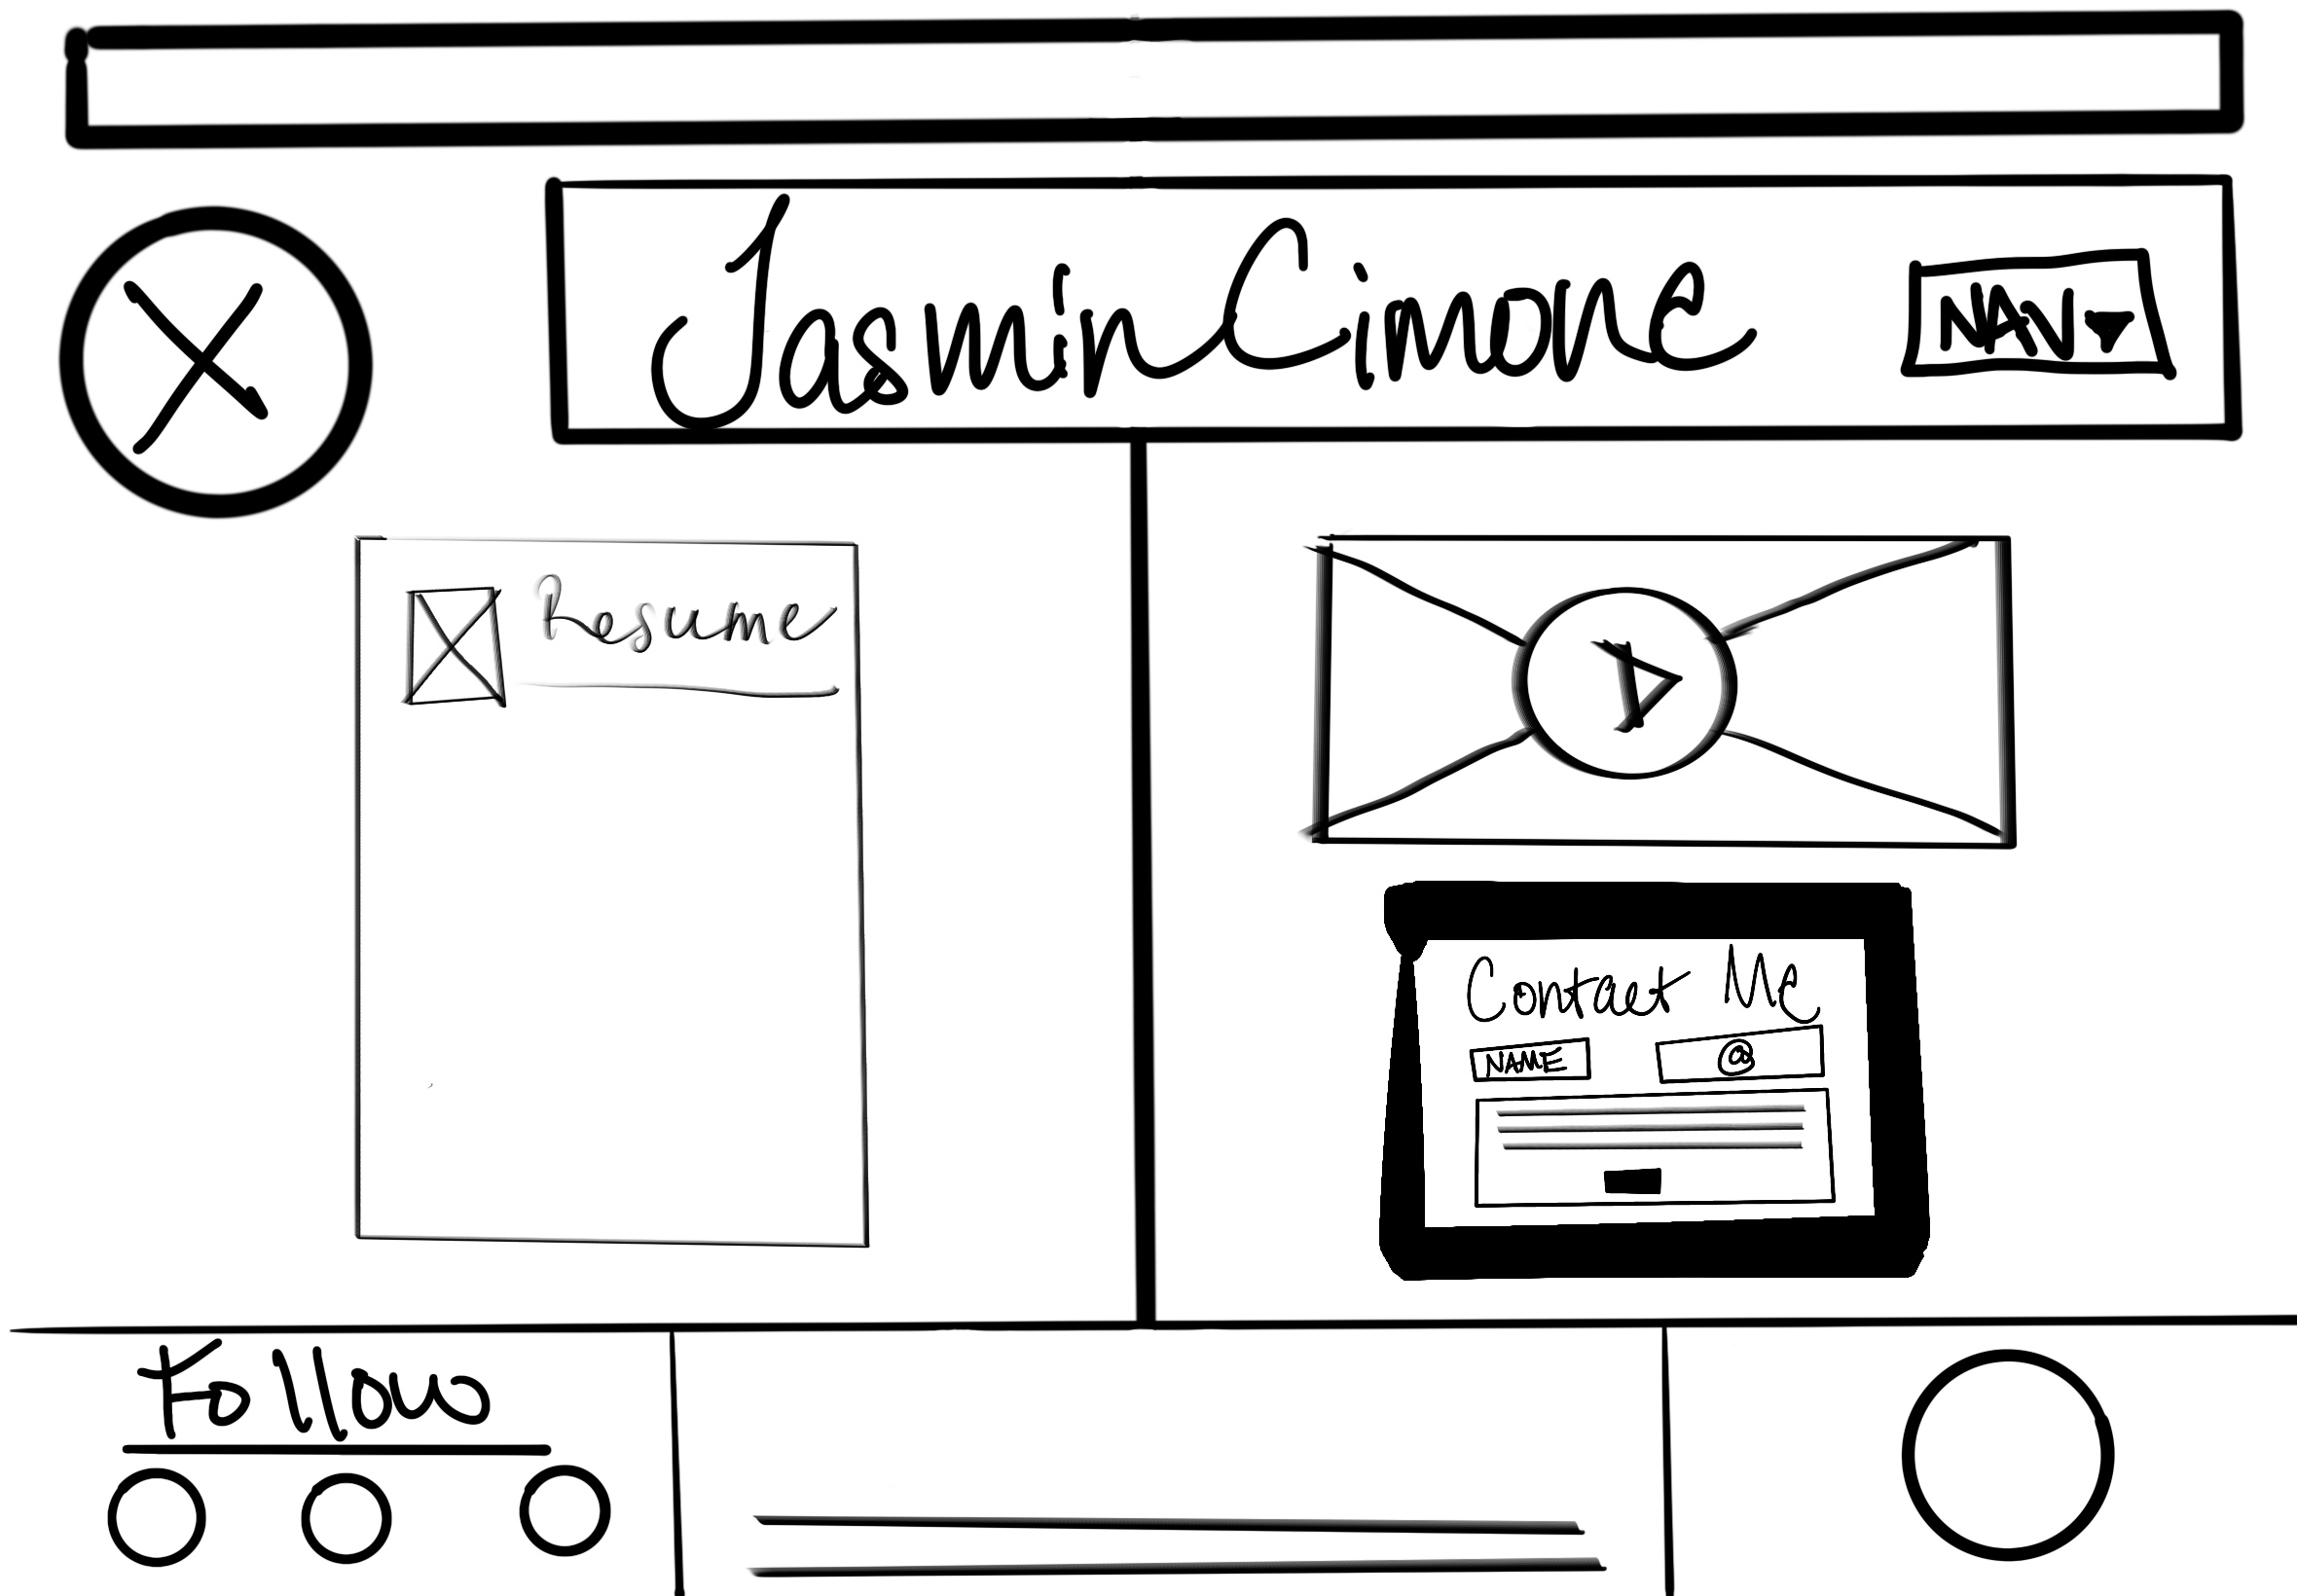 Jasmin Cimone
NAV
Resume
Contact Me
NAME
@
Follow